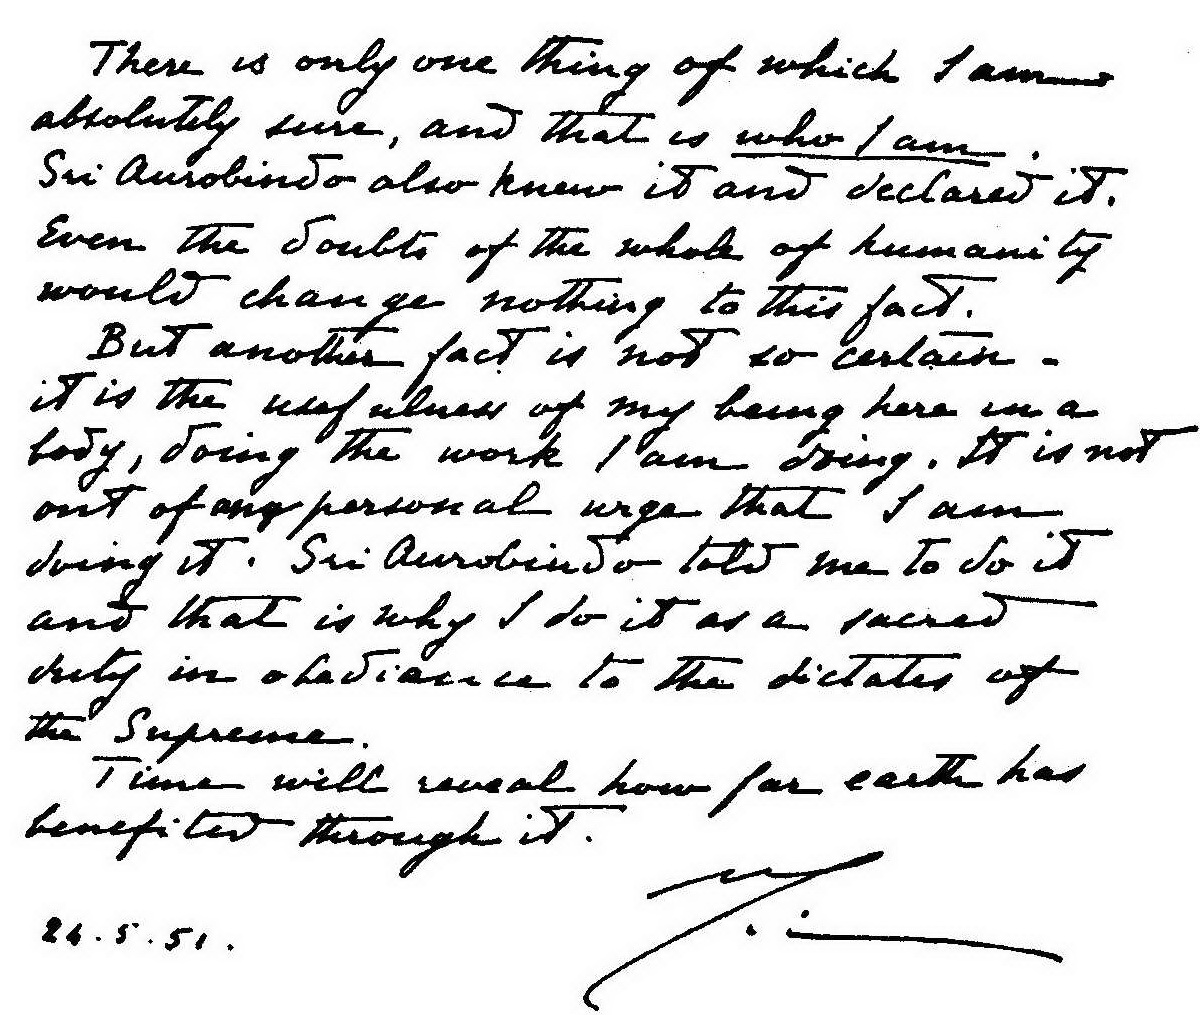 There is only one thing of which I am
absolutely sure, and that is who I am.
Sri Aurobindo also knew it and declared it.
Even the doubts of the whole of humanity
would change nothing to this fact.
But another fact is not so certain -
it is the usefulness of my being here in a
body, doing the work I am doing. It is not
out of any personal urge that I am
doing it. Sri Aurobindo told me to do it
and that is why I do it as a sacred
duty in obedience to the dictates of
the Supreme.
Time will reveal how far earth has
benefited through it.
24.5.51.